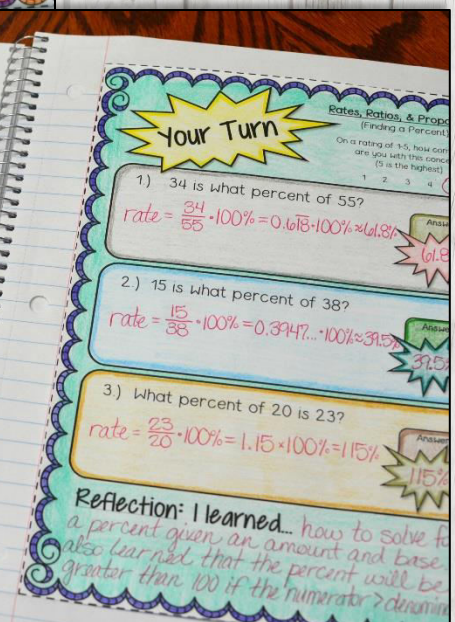 Your Turn
Rates, Ratios, & Propo
(Finding a Percent)
On a rating of 1-5, how con
are you with this conce
(5 is the highest)
1 2 3 4
1.) 34 is what percent of 55?
rate = 34/55 · 100% = 0.6\overline{18} · 100% ≈ 61.8%
Answ
61.8
2.) 15 is what percent of 38?
rate = 15/38 · 100% = 0.3947... · 100% ≈ 39.5%
Answe
39.5%
3.) What percent of 20 is 23?
rate = 23/20 · 100% = 1.15 × 100% = 115%
Answer
115%
Reflection: I learned... how to solve f
a percent given an amount and base.
also learned that the percent will be
greater than 100 if the numerator > denomin